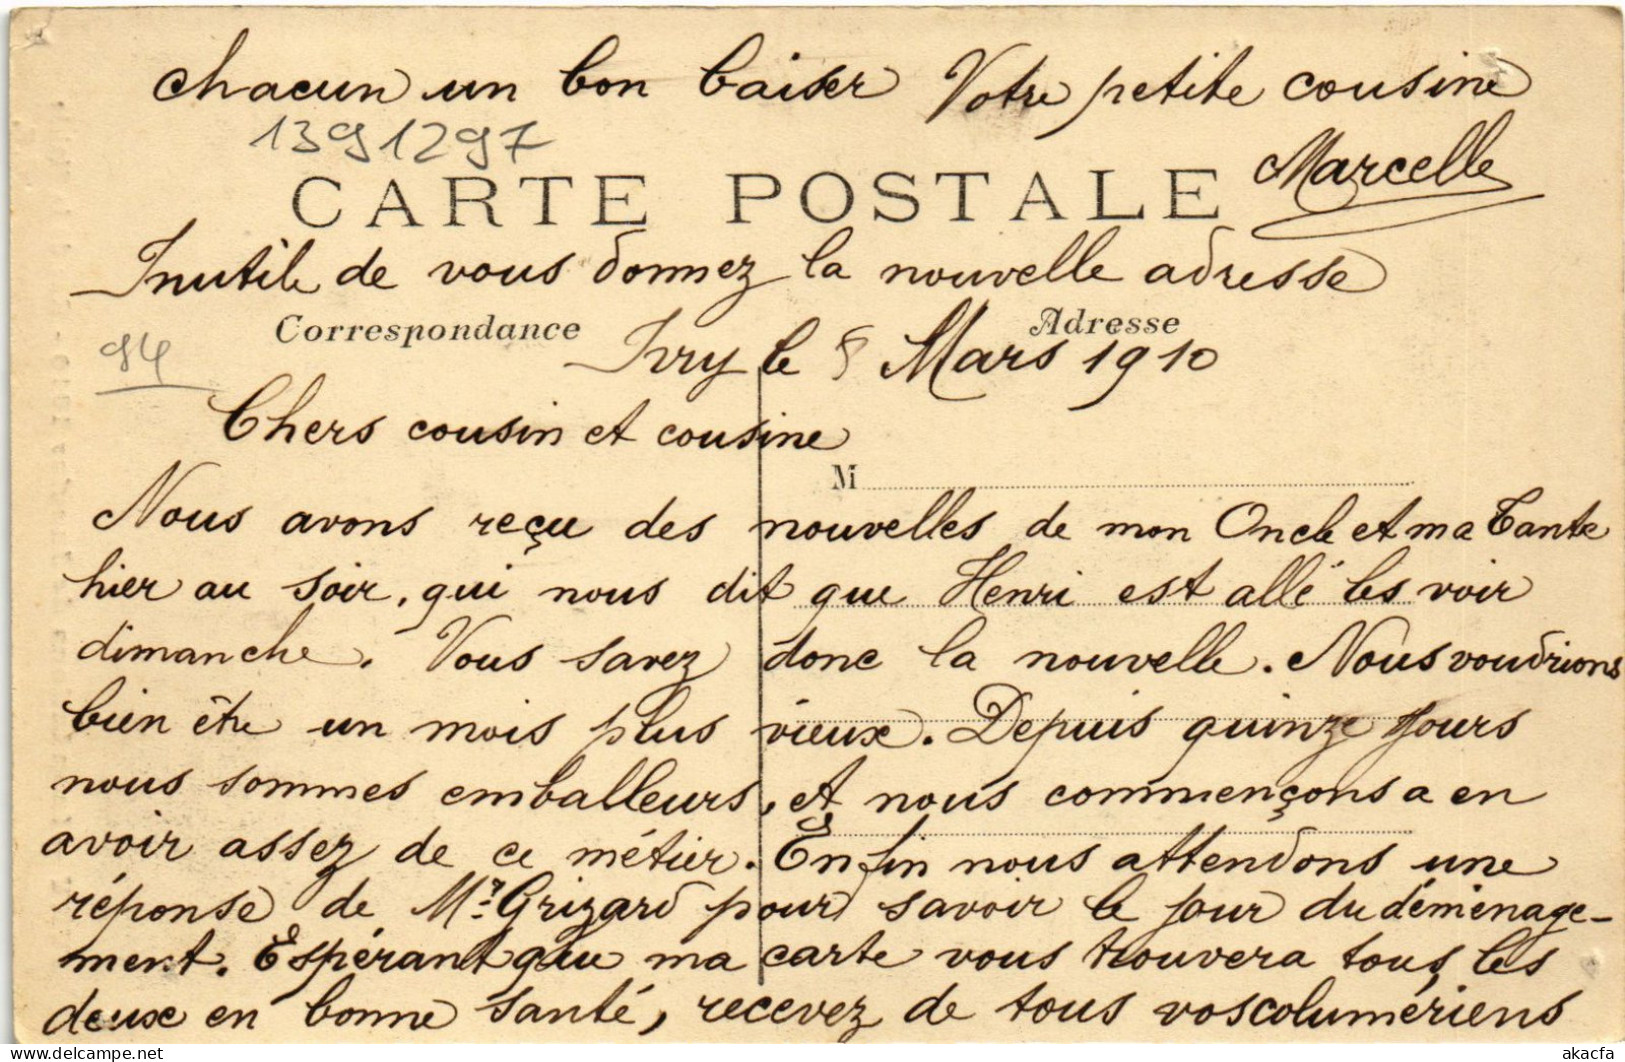 chacun un bon baiser Votre petite cousine
1391297
Marcelle
CARTE POSTALE
Inutile de vous donnez la nouvelle adresse
Correspondance
Adresse
94
Ivry le 8 Mars 1910
Chers cousin et cousine
M
Nous avons reçu des nouvelles de mon Oncle et ma Tante
hier au soir, qui nous dit que Henri est allé les voir
dimanche. Vous savez donc la nouvelle. Nous voudrions
bien être un mois plus vieux. Depuis quinze jours
nous sommes emballeurs, et nous commençons a en
avoir assez de ce métier. Enfin nous attendons une
réponse de Mr Grizard pour savoir le jour du déménage-
ment. Espérant que ma carte vous trouvera tous les
deux en bonne santé, recevez de tous vos columériens
akacfa